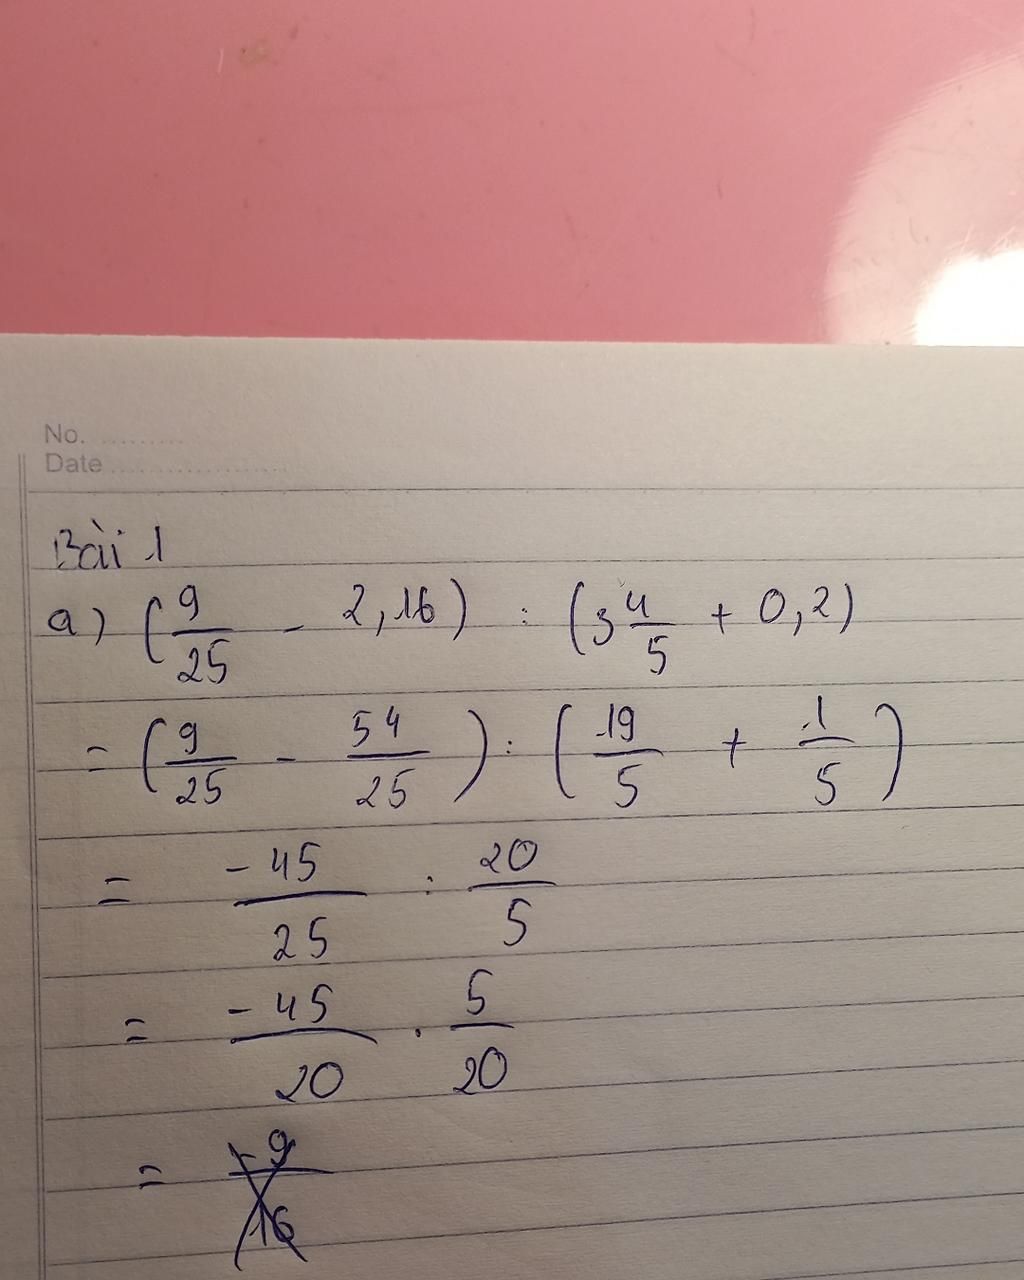 No. ..........
Date .....................
Bài 1
a) (9/25 - 2,16) : (3 4/5 + 0,2)
= (9/25 - 54/25) : (19/5 + 1/5)
= -45/25 : 20/5
= -45/20 . 5/20
= -9/16